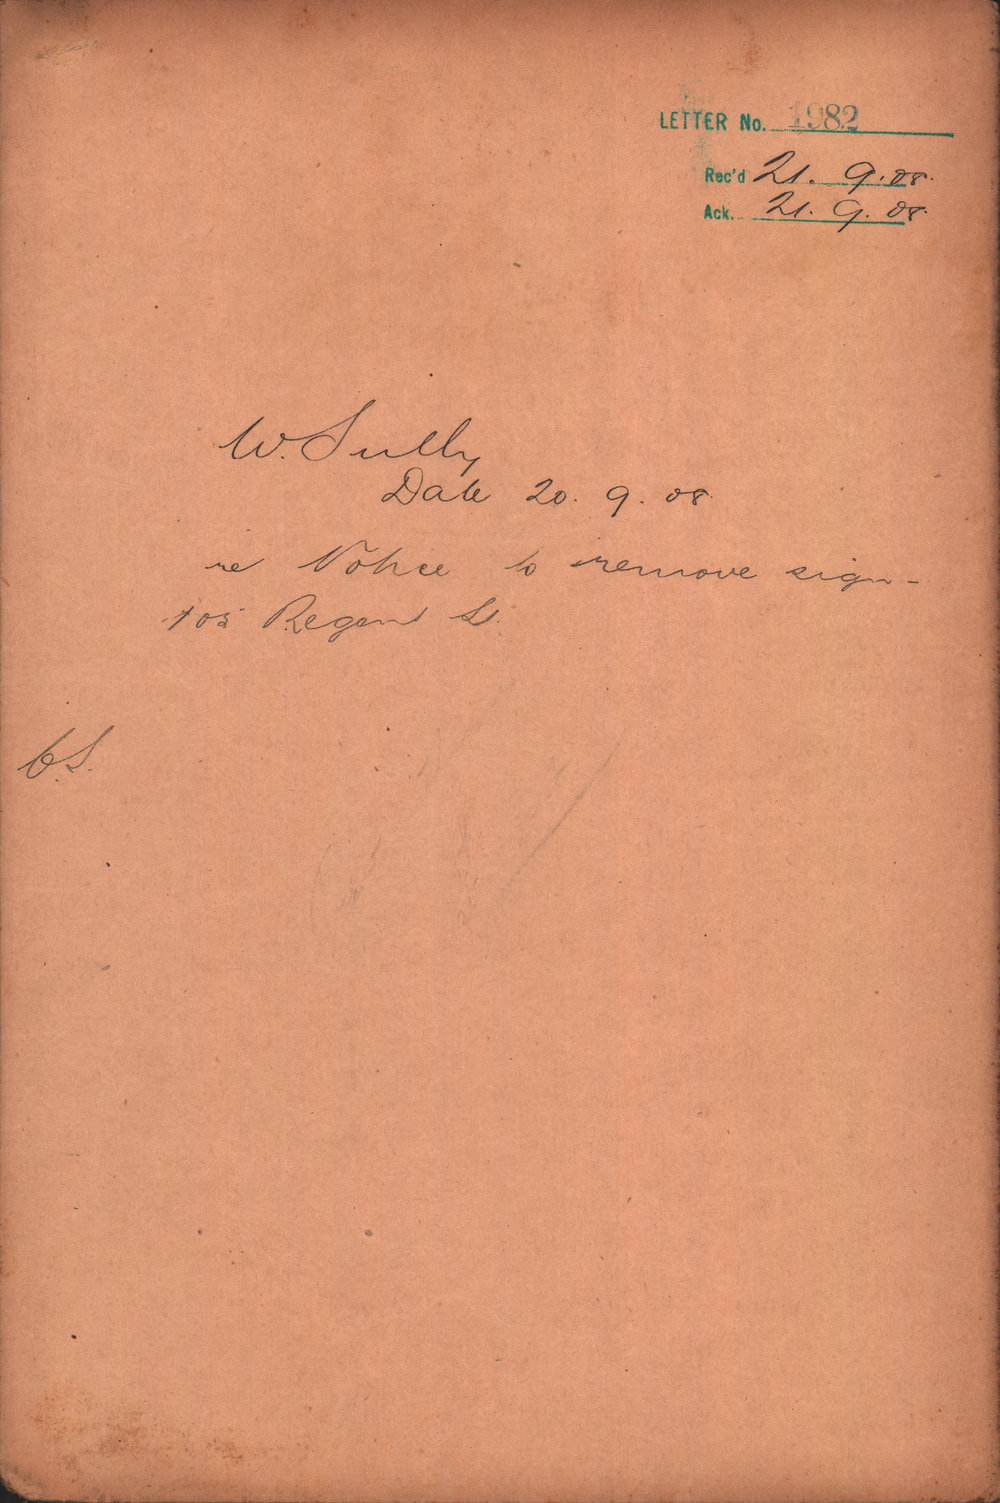 LETTER No. 1982
Rec'd 21. 9. 08.
Ack. 21. 9. 08.
W. Sully
Date 20. 9. 08
re Notice to remove sign -
105 Regent St.
C.S.